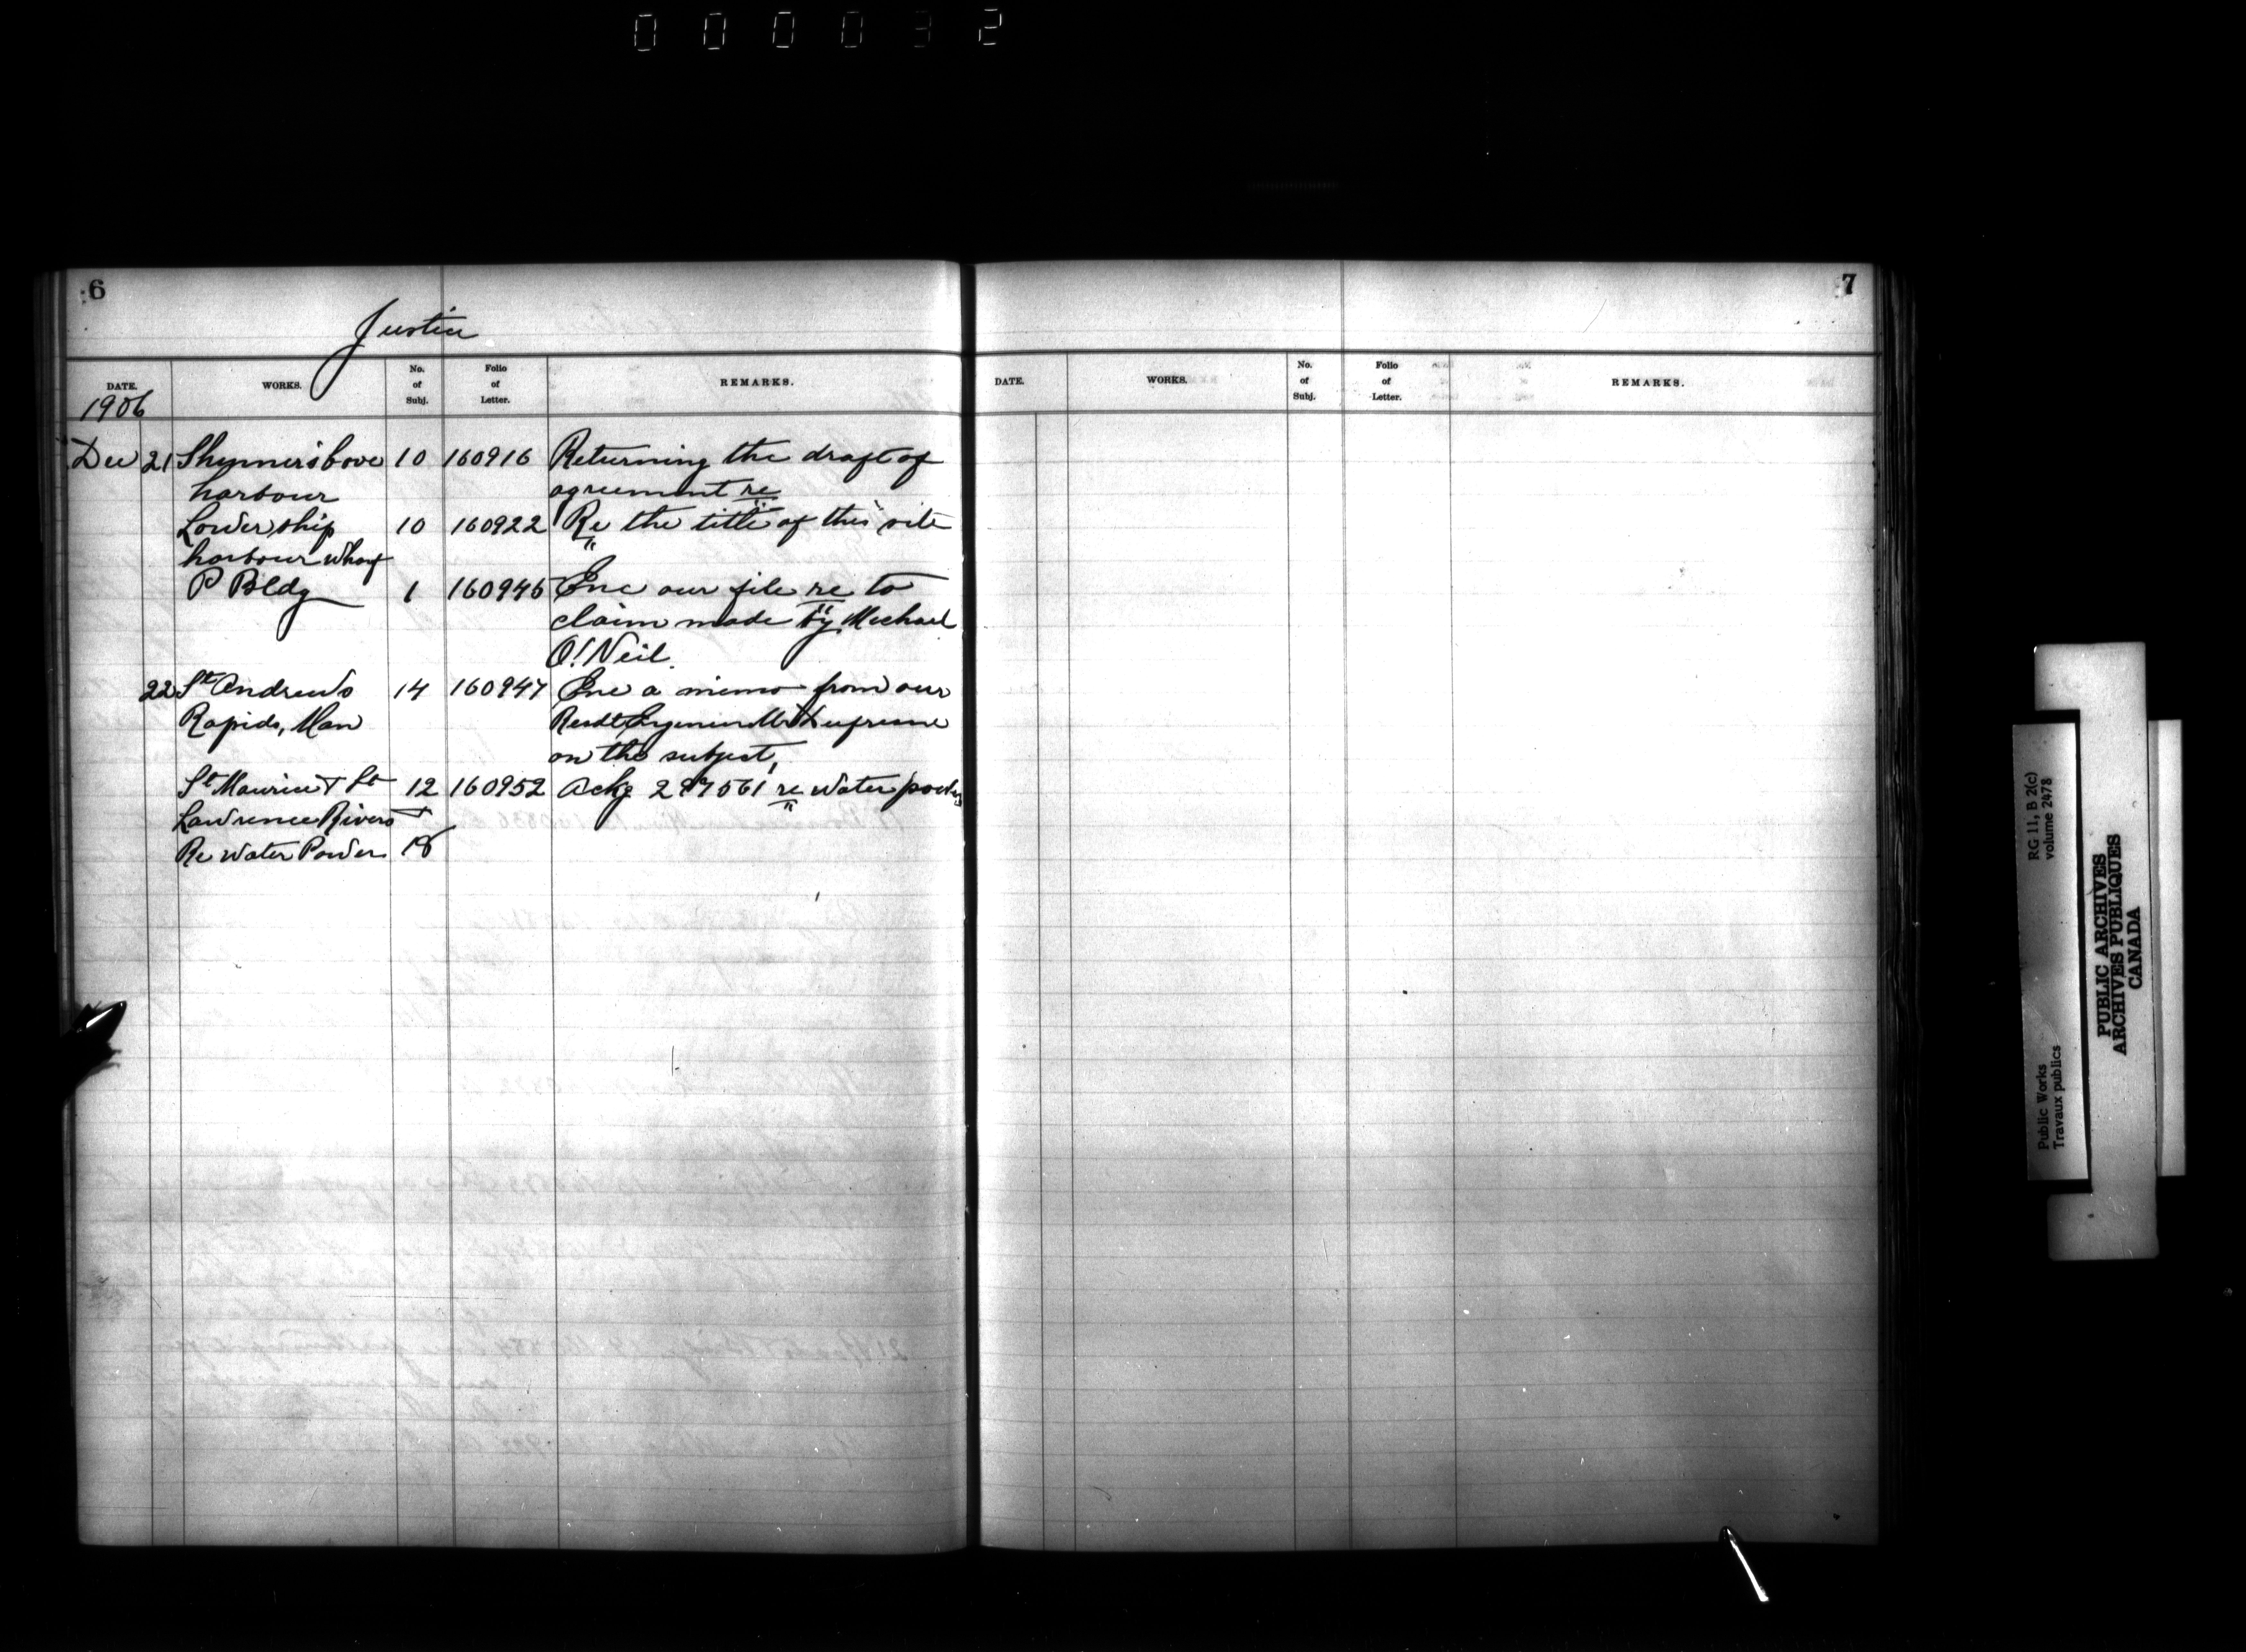 000032
6
Justice
DATE. WORKS. No. of Subj. Folio of Letter. REMARKS.
1906
Dec 21 Skynner's Cove 10 160916 Returning the draft of
harbour agreement re
Lower ship 10 160922 Re the title of this site
harbour wharf
P Bldg 1 160945 Enc our file re to
claim made by Michael
O'Neil.
22 St Andrews 14 160947 Enc a memo from our
Rapids, Man Resdt Engineer Mr
on the subject,
St Maurice & St 12 160952 Ackg 297561 re water powers
Lawrence Rivers &
Re Water Powers 18
7
DATE. WORKS. No. of Subj. Folio of Letter. REMARKS.
RG 11, B 2(c)
volume 2478
Public Works
Travaux publics
PUBLIC ARCHIVES
ARCHIVES PUBLIQUES
CANADA